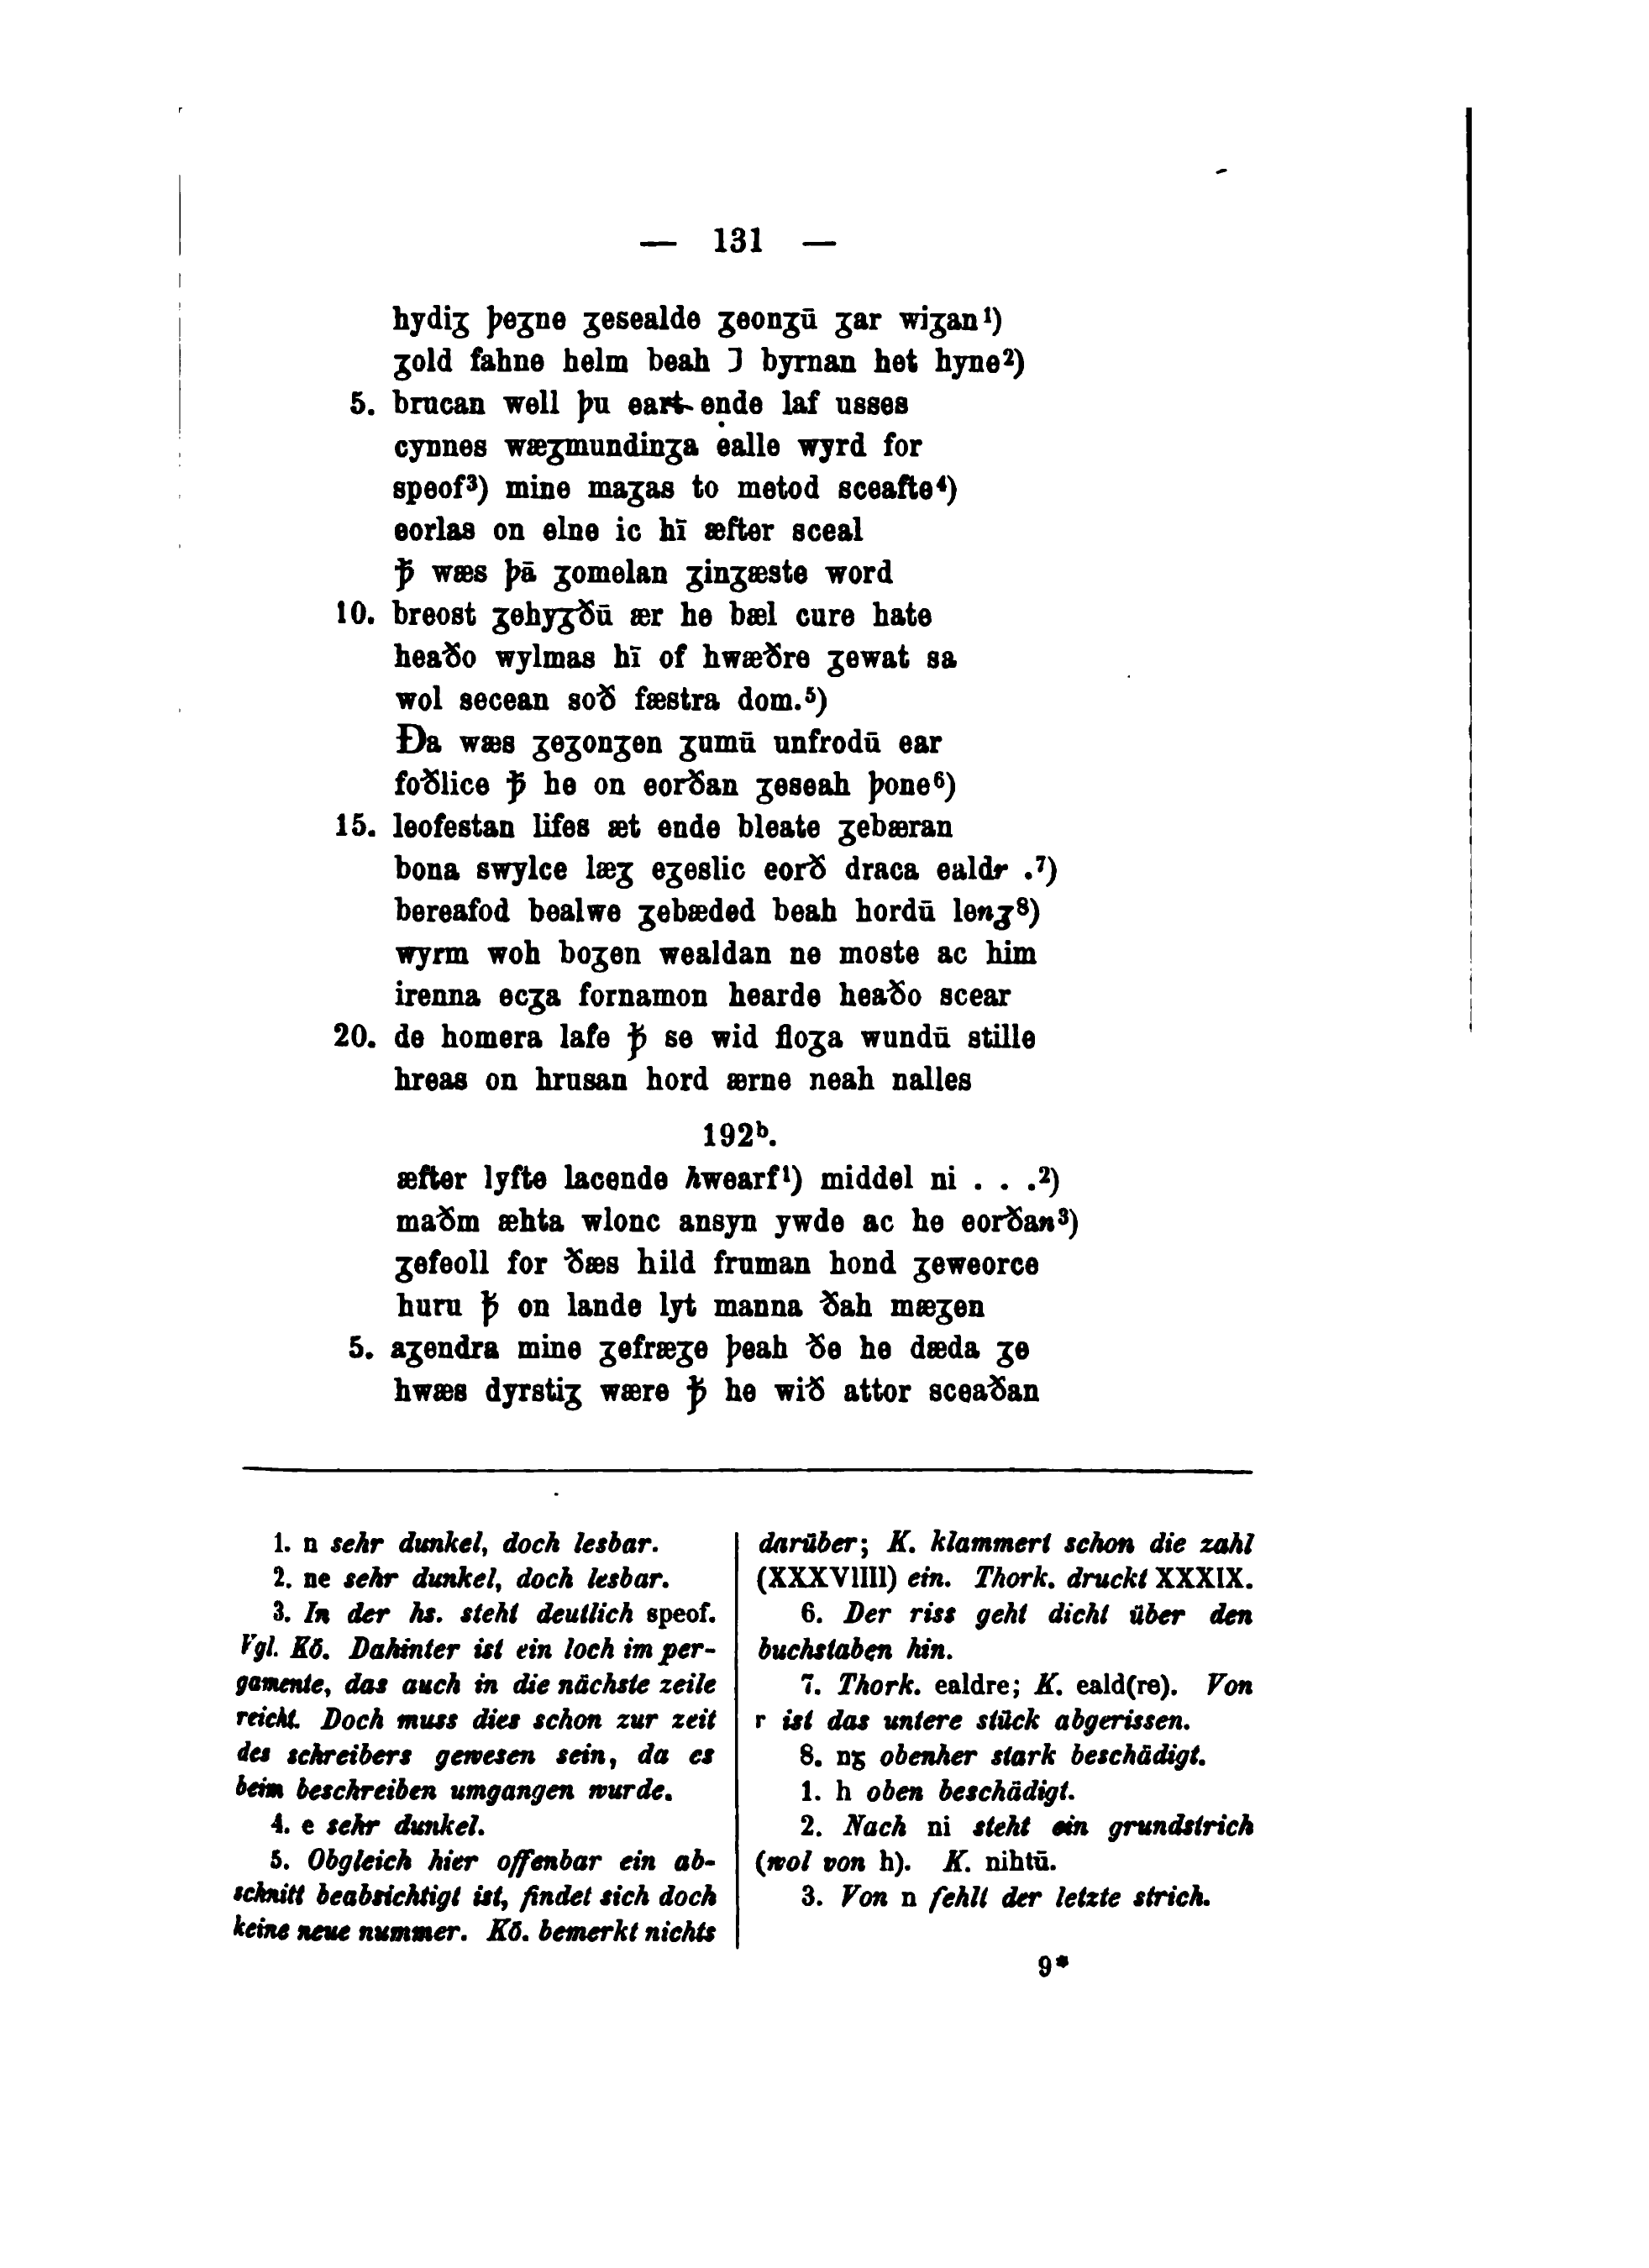 — 131 —
hydiʒ þeʒne ʒesealde ʒeonʒū ʒar wiʒan¹)
ʒold fahne helm beah ⁊ byrnan het hyne²)
5. brucan well þu eart ende laf usses
cynnes wæʒmundinʒa ėalle wyrd for
speof³) mine maʒas to metod sceafte⁴)
eorlas on elne ic hī æfter sceal
ꝥ wæs þā ʒomelan ʒinʒæste word
10. breost ʒehyʒðū ær he bæl cure hate
heaðo wylmas hī of hwæðre ʒewat sa
wol secean soð fæstra dom.⁵)
Ða wæs ʒeʒonʒen ʒumū unfrodū ear
foðlice ꝥ he on eorðan ʒeseah þone⁶)
15. leofestan lifes æt ende bleate ʒebæran
bona swylce læʒ eʒeslic eorð draca ealdr .⁷)
bereafod bealwe ʒebæded beah hordū lenʒ⁸)
wyrm woh boʒen wealdan ne moste ac him
irenna ecʒa fornamon hearde heaðo scear
20. de homera lafe ꝥ se wid floʒa wundū stille
hreas on hrusan hord ærne neah nalles
192ᵇ.
æfter lyfte lacende hwearf¹) middel ni . . .²)
maðm æhta wlonc ansyn ywde ac he eorðan³)
ʒefeoll for ðæs hild fruman hond ʒeweorce
huru ꝥ on lande lyt manna ðah mæʒen
5. aʒendra mine ʒefræʒe þeah ðe he dæda ʒe
hwæs dyrstiʒ wære ꝥ he wið attor sceaðan
1. n sehr dunkel, doch lesbar.
2. ne sehr dunkel, doch lesbar.
3. In der hs. steht deutlich speof.
Vgl. Kö. Dahinter ist ein loch im per-
gamente, das auch in die nächste zeile
reicht. Doch muss dies schon zur zeit
des schreibers gewesen sein, da es
beim beschreiben umgangen wurde.
4. e sehr dunkel.
5. Obgleich hier offenbar ein ab-
schnitt beabsichtigt ist, findet sich doch
keine neue nummer. Kö. bemerkt nichts
darüber; K. klammert schon die zahl
(XXXVIIII) ein. Thork. druckt XXXIX.
6. Der riss geht dicht über den
buchstaben hin.
7. Thork. ealdre; K. eald(re). Von
r ist das untere stück abgerissen.
8. nʒ obenher stark beschädigt.
1. h oben beschädigt.
2. Nach ni steht ein grundstrich
(wol von h). K. nihtū.
3. Von n fehlt der letzte strich.
9*